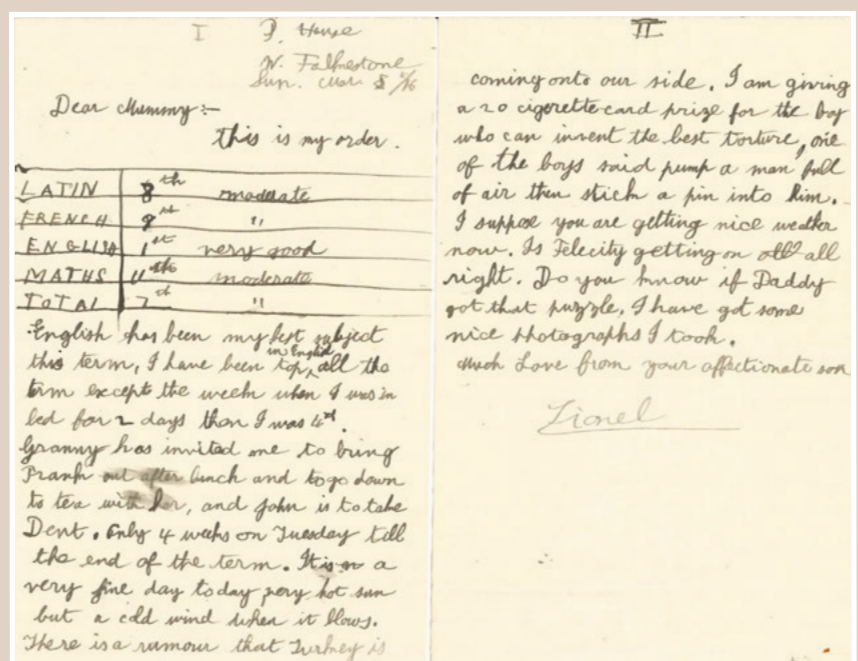 I
P. House
W. Folkestone
Sun. Mar 5
Dear Mummy:-
this is my order.
LATIN 8th moderate
FRENCH 9st "
ENGLISH 1st very good
MATHS 11th moderate
TOTAL 7th "
English has been my best subject
this term, I have been top, in English all the
term except the week when I was in
bed for 2 days then I was 4rd.
Granny has invited me to bring
Frank out after lunch and to go down
to tea with her, and John is to take
Dent. Only 4 weeks on Tuesday till
the end of the term. It is a
very fine day today very hot sun
but a cold wind when it blows.
There is a rumour that Turkey is
II
coming onto our side. I am giving
a 20 cigerette card prize for the boy
who can invent the best torture, one
of the boys said pump a man full
of air then stick a pin into him.
I suppose you are getting nice weather
now. Is Felecity getting on all
right. Do you know if Daddy
got that puzzle. I have got some
nice photographs I took.
Much Love from your affectionate son
Lionel